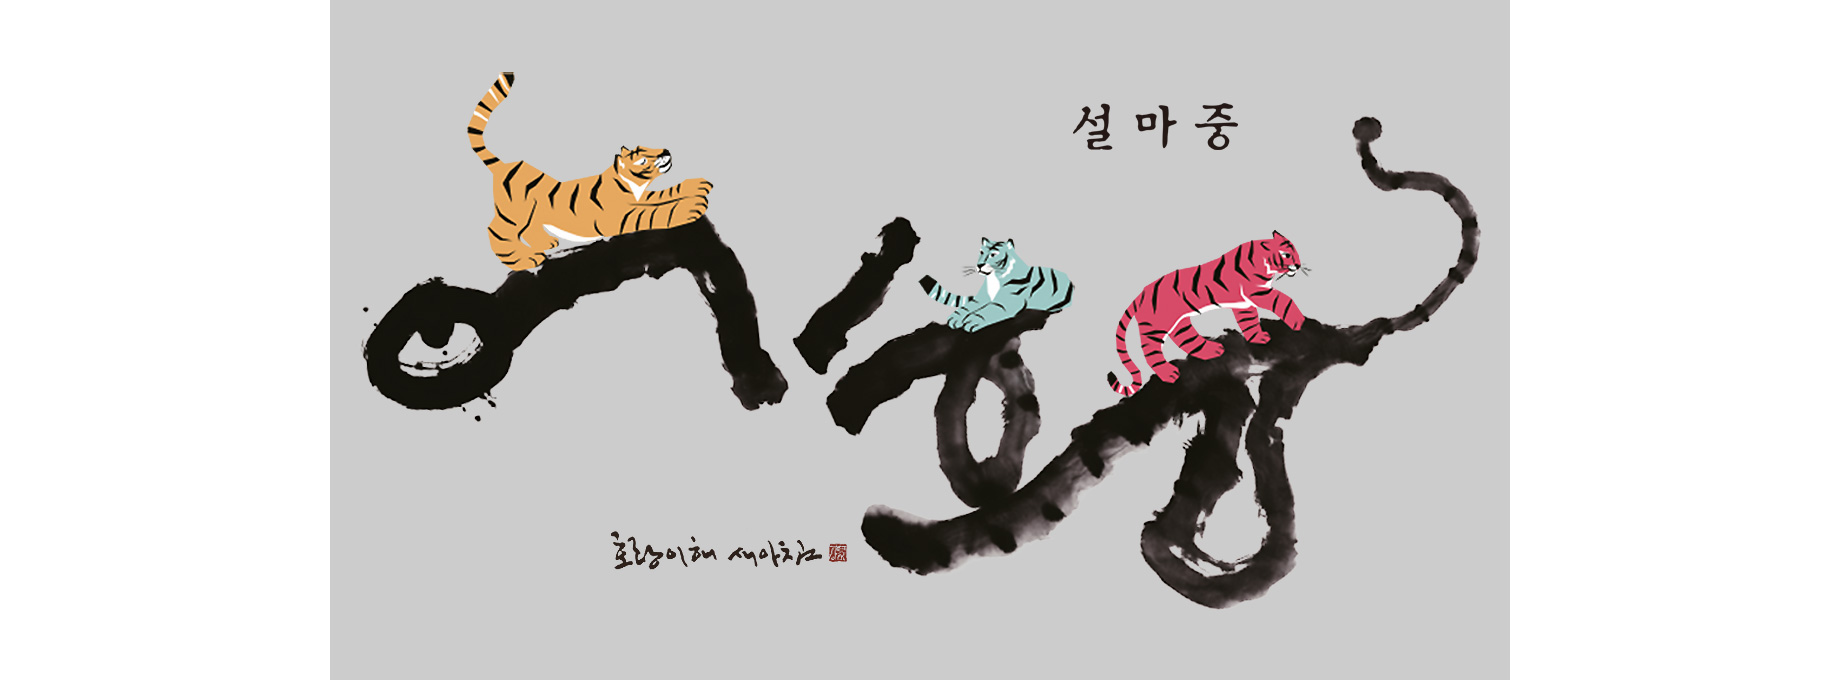 설마중
어흥
호랑이해 새아침